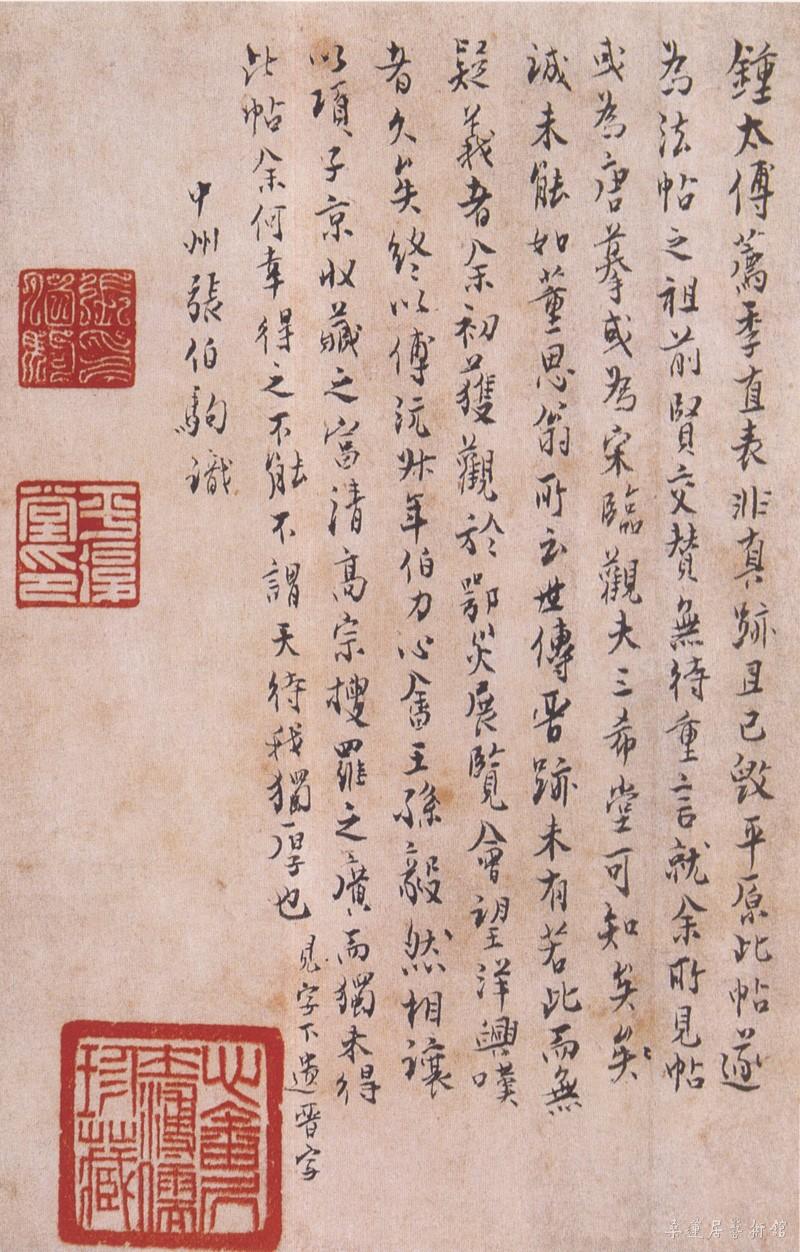 鍾太傅薦季直表非真跡且已毀平原此帖遂
為法帖之祖前賢交贊無待重言就余所見帖
或為唐摹或為宋臨觀夫三希堂可知矣矣
誠未能如董思翁所云世傳晉跡未有若此而無
疑義者余初獲觀於鄂災展覽會望洋興嘆
者久矣終以傅沅叔年伯力心畬王孫毅然相讓
以項子京收藏之富清高宗搜羅之廣而獨未得
此帖余何幸得之不能不謂天待我獨厚也
見字下遺晉字
中州張伯駒識
張伯駒
平復堂印
心畬人
溥儒
珍藏
幸蓮居藝術館